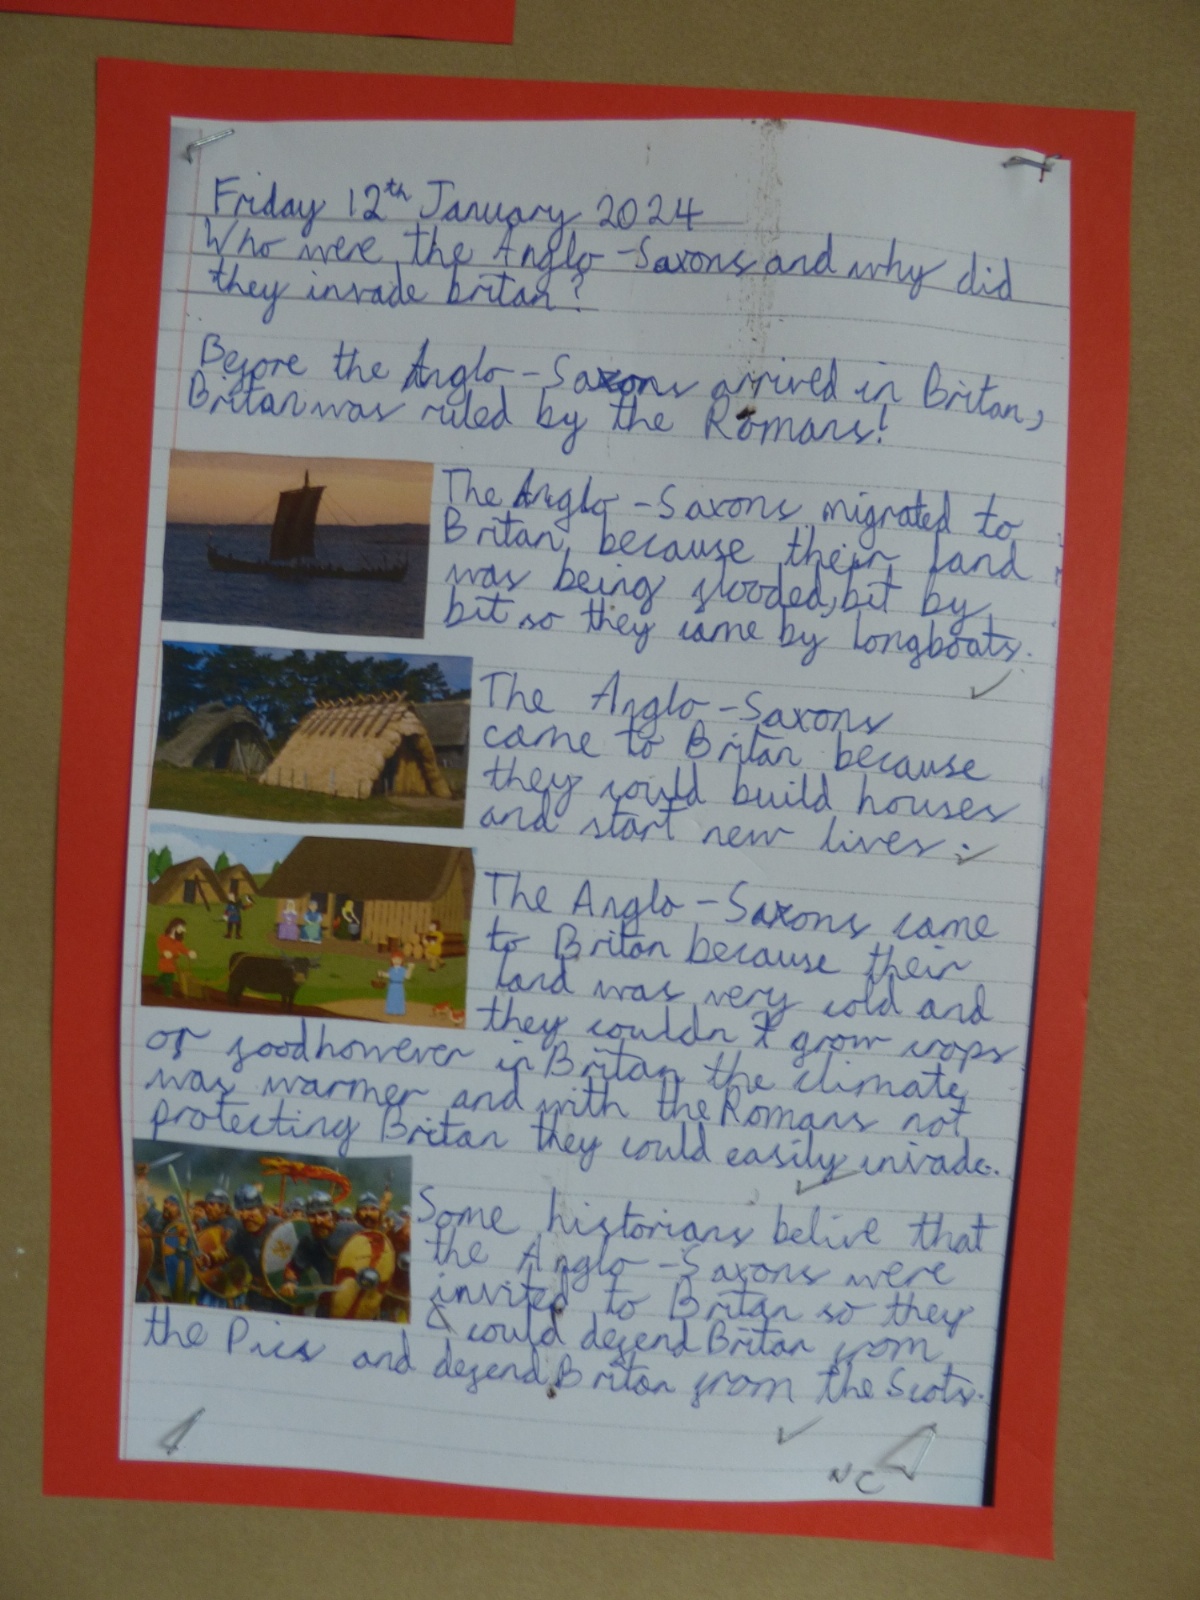 Friday 12th January 2024
Who were the Anglo-Saxons and why did
they invade britan?
Before the Anglo-Saxons arrived in Britan,
Britan was ruled by the Romans!
The Anglo-Saxons migrated to
Britan, because their land
was being flooded, bit by
bit so they came by longboats.
The Anglo-Saxons
came to Britan because
they could build houses
and start new lives.
The Anglo-Saxons came
to Britan because their
land was very cold and
they couldn't grow crops
or food however in Britan the climate
was warmer and with the Romans not
protecting Britan they could easily invade.
Some historians belive that
the Anglo-Saxons were
invited to Britan so they
could defend Britan from
the Pics and defend Britan from the Scots.
NC